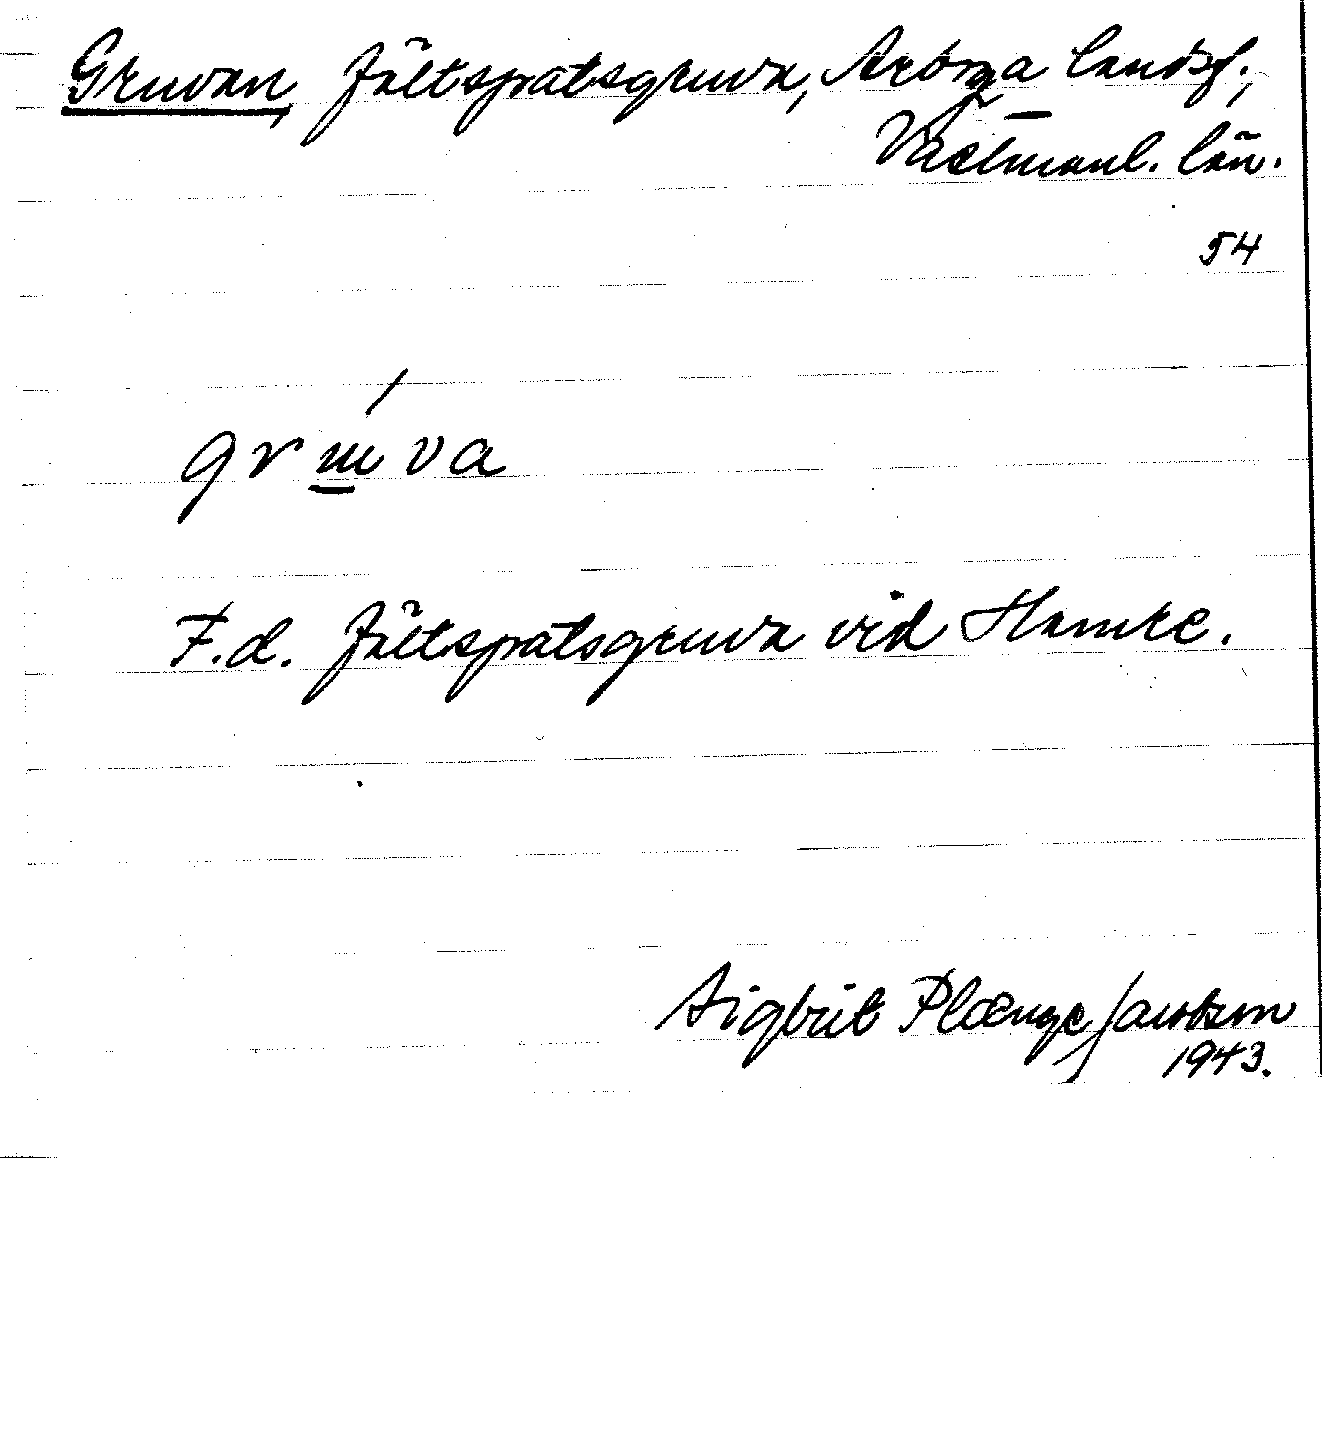 Gruvan, fältspatsgruva, Arboga landsf.,
Västmanl. län.
54
gruva
F.d. fältspatsgruva vid Hamre.
Sigbrit Plænge Jacobson
1943.